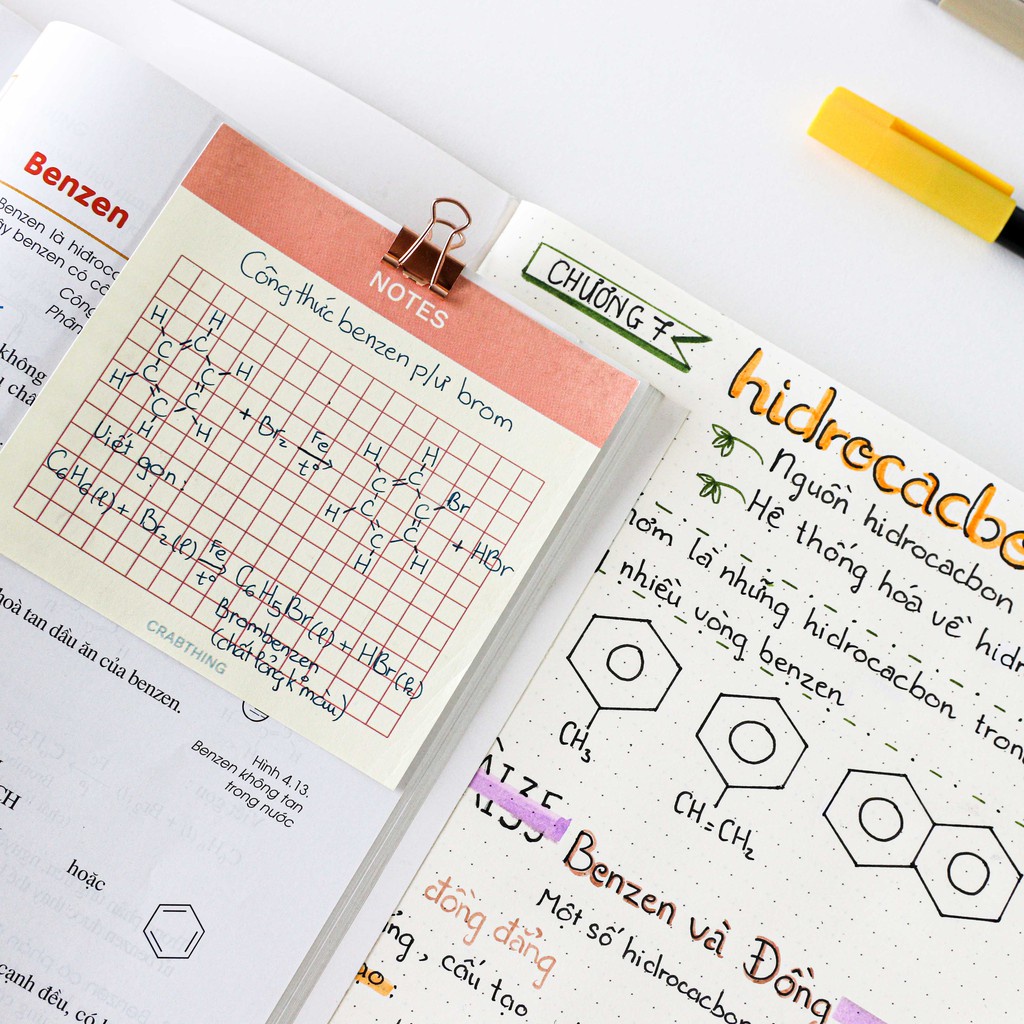 Benzen
Benzen là hiđroca
ây benzen có cô
Công
Phân
không
hoà tan dầu ăn của benzen.
Hình 4.13.
Benzen không tan
trong nước
CH
hoặc
cạnh đều, có l
NOTES
Công thức benzen p/ư brom
H H
C C
H C C H
C C
H H
+ Br₂ Fe t° → H H
C C
H C C Br
C C
H H
+ HBr
Viết gọn:
C₆H₆(l) + Br₂(l) Fe t° → C₆H₅Br(l) + HBr(k)
Brombenzen
(chất lỏng k màu)
CRABTHING
CHƯƠNG 7
hidrocacbo
Nguồn hidrocacbon
Hệ thống hóa về hidr
hơm là những hidrocacbon tron
nhiều vòng benzen
CH₃
CH=CH₂
Bài 35
Benzen và Đồng
đồng đẳng
Một số hidrocacbon
ẳng, cấu tạo
ạo: